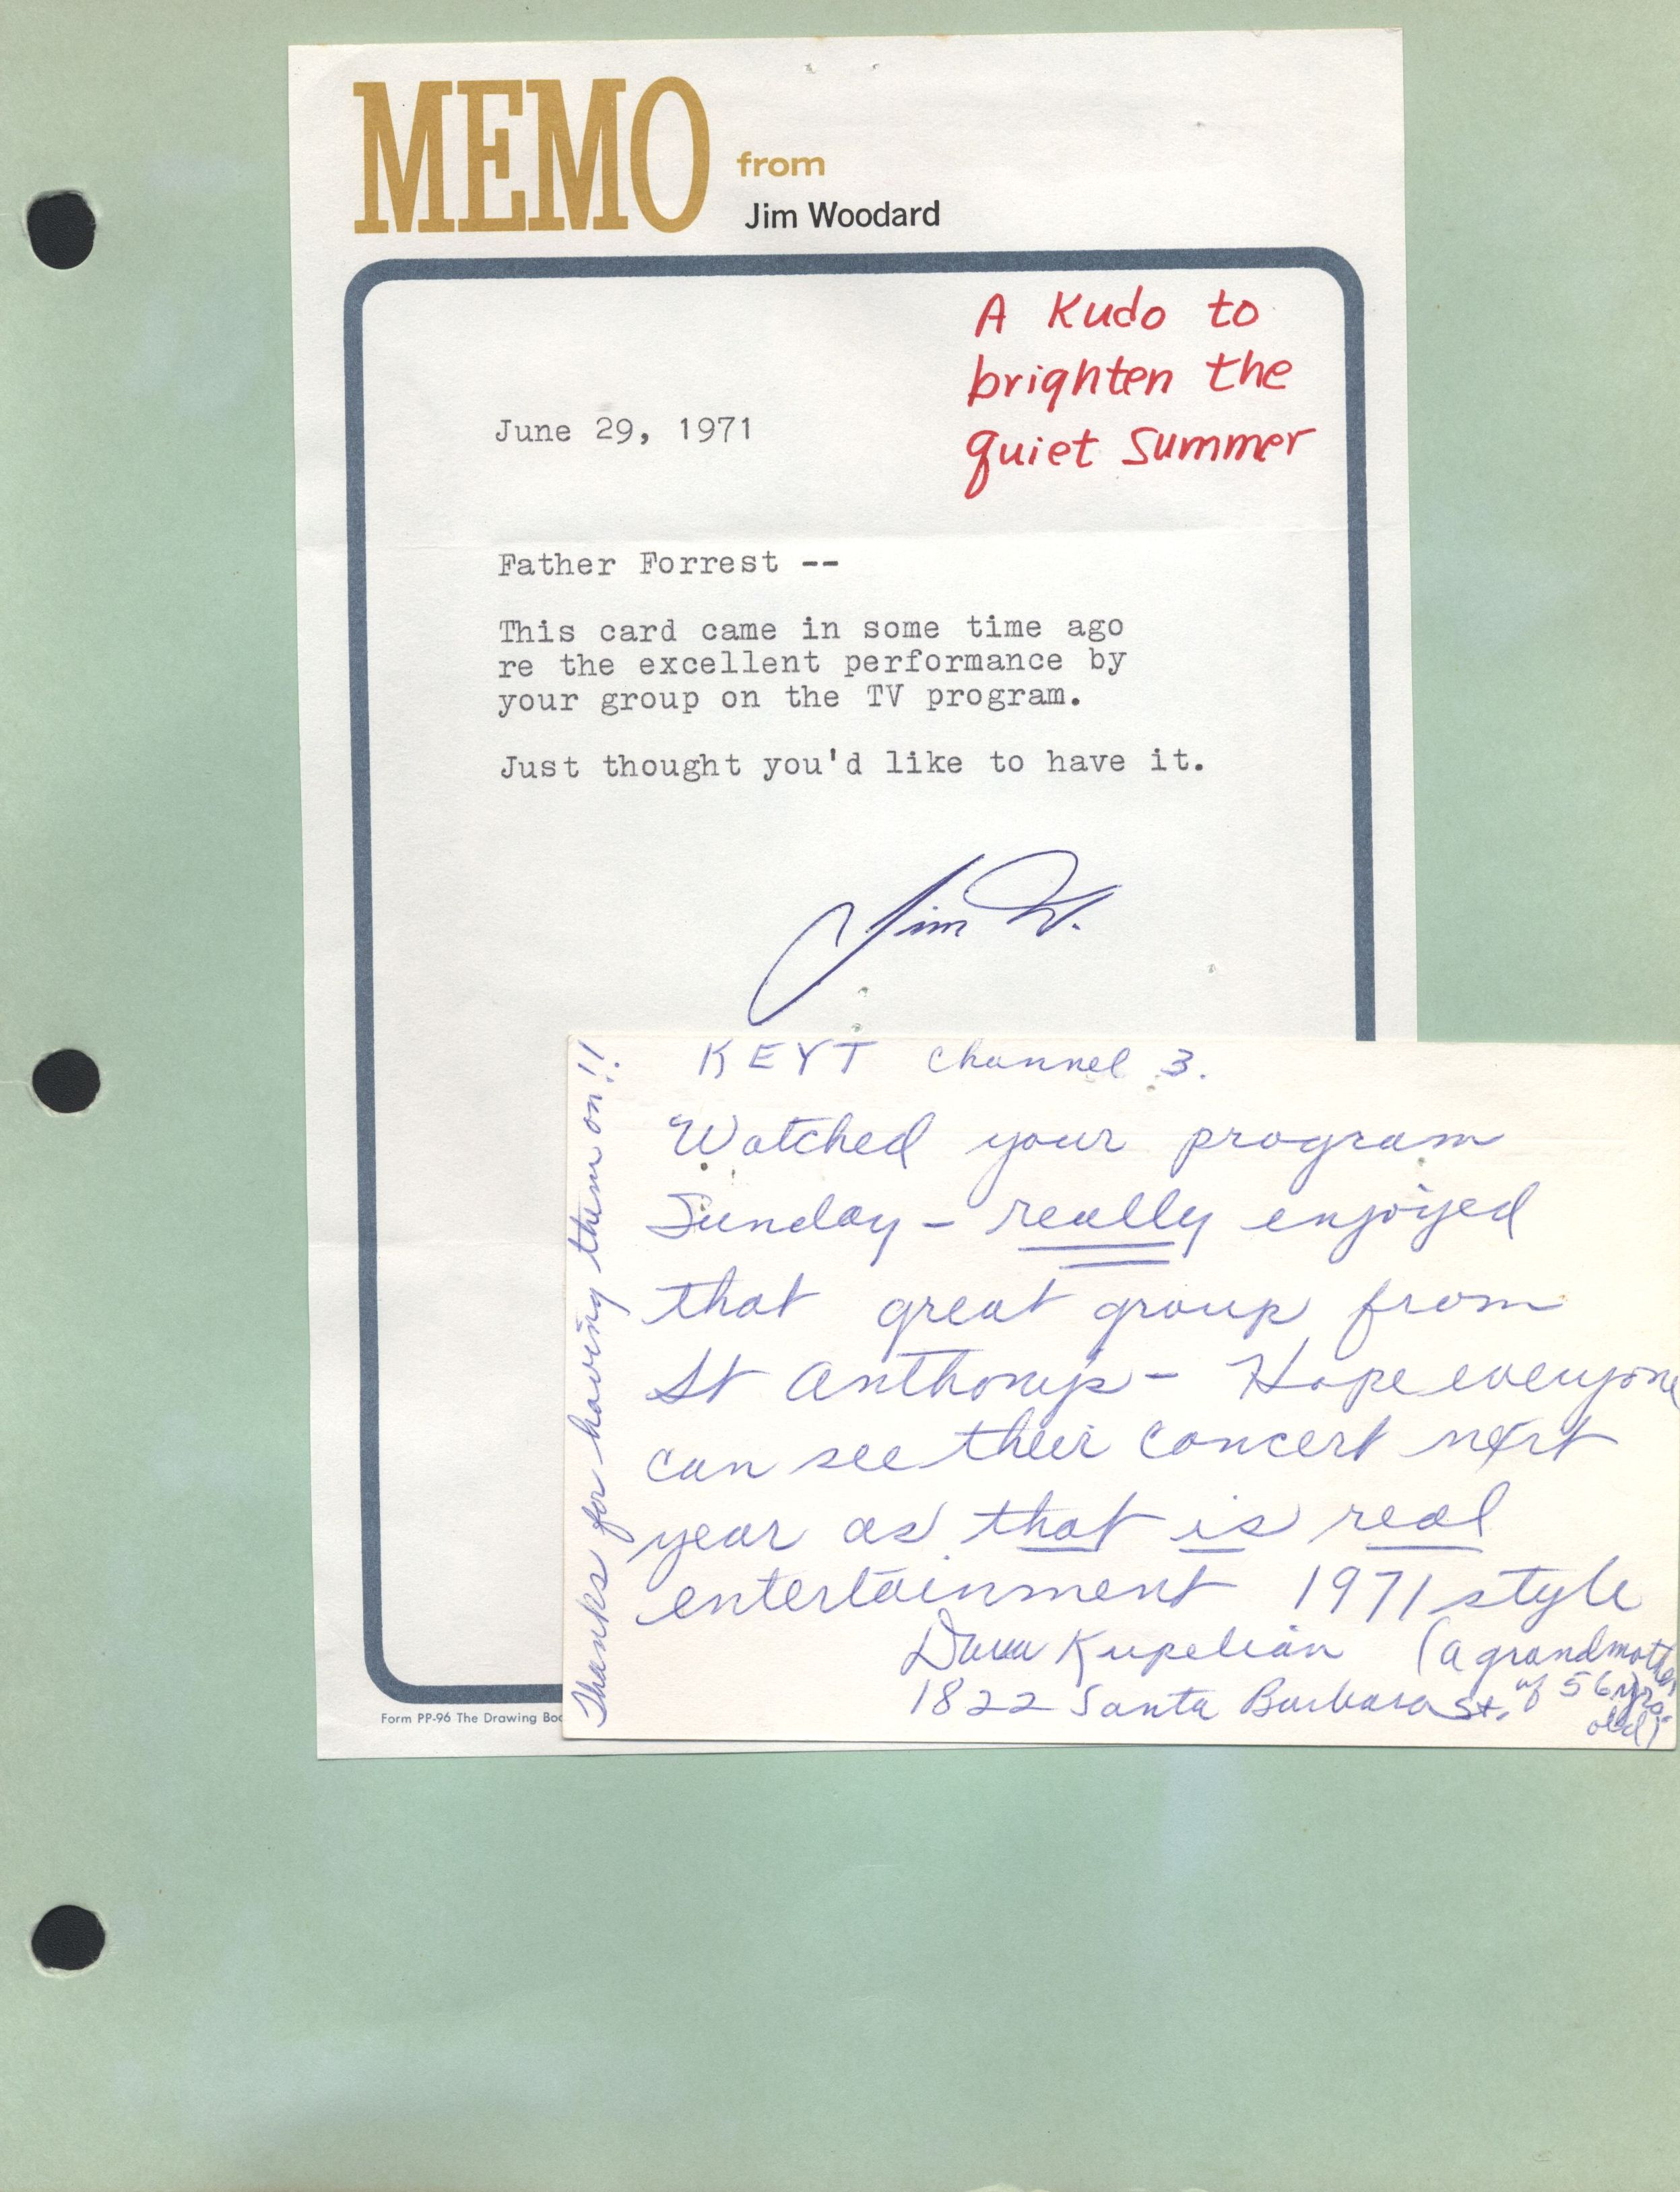 MEMO from
Jim Woodard
A Kudo to
brighten the
quiet Summer
June 29, 1971
Father Forrest --
This card came in some time ago
re the excellent performance by
your group on the TV program.
Just thought you'd like to have it.
Jim W.
KEYT Channel 3.
Watched your program
Sunday - really enjoyed
that great group from
St Anthony's - Hope everyone
can see their concert next
year as that is real
entertainment 1971 style
Kupelian (a grandmother
1822 Santa Barbara St. of 56 yrs.
old)
Thanks for having them on!!
Form PP-96 The Drawing